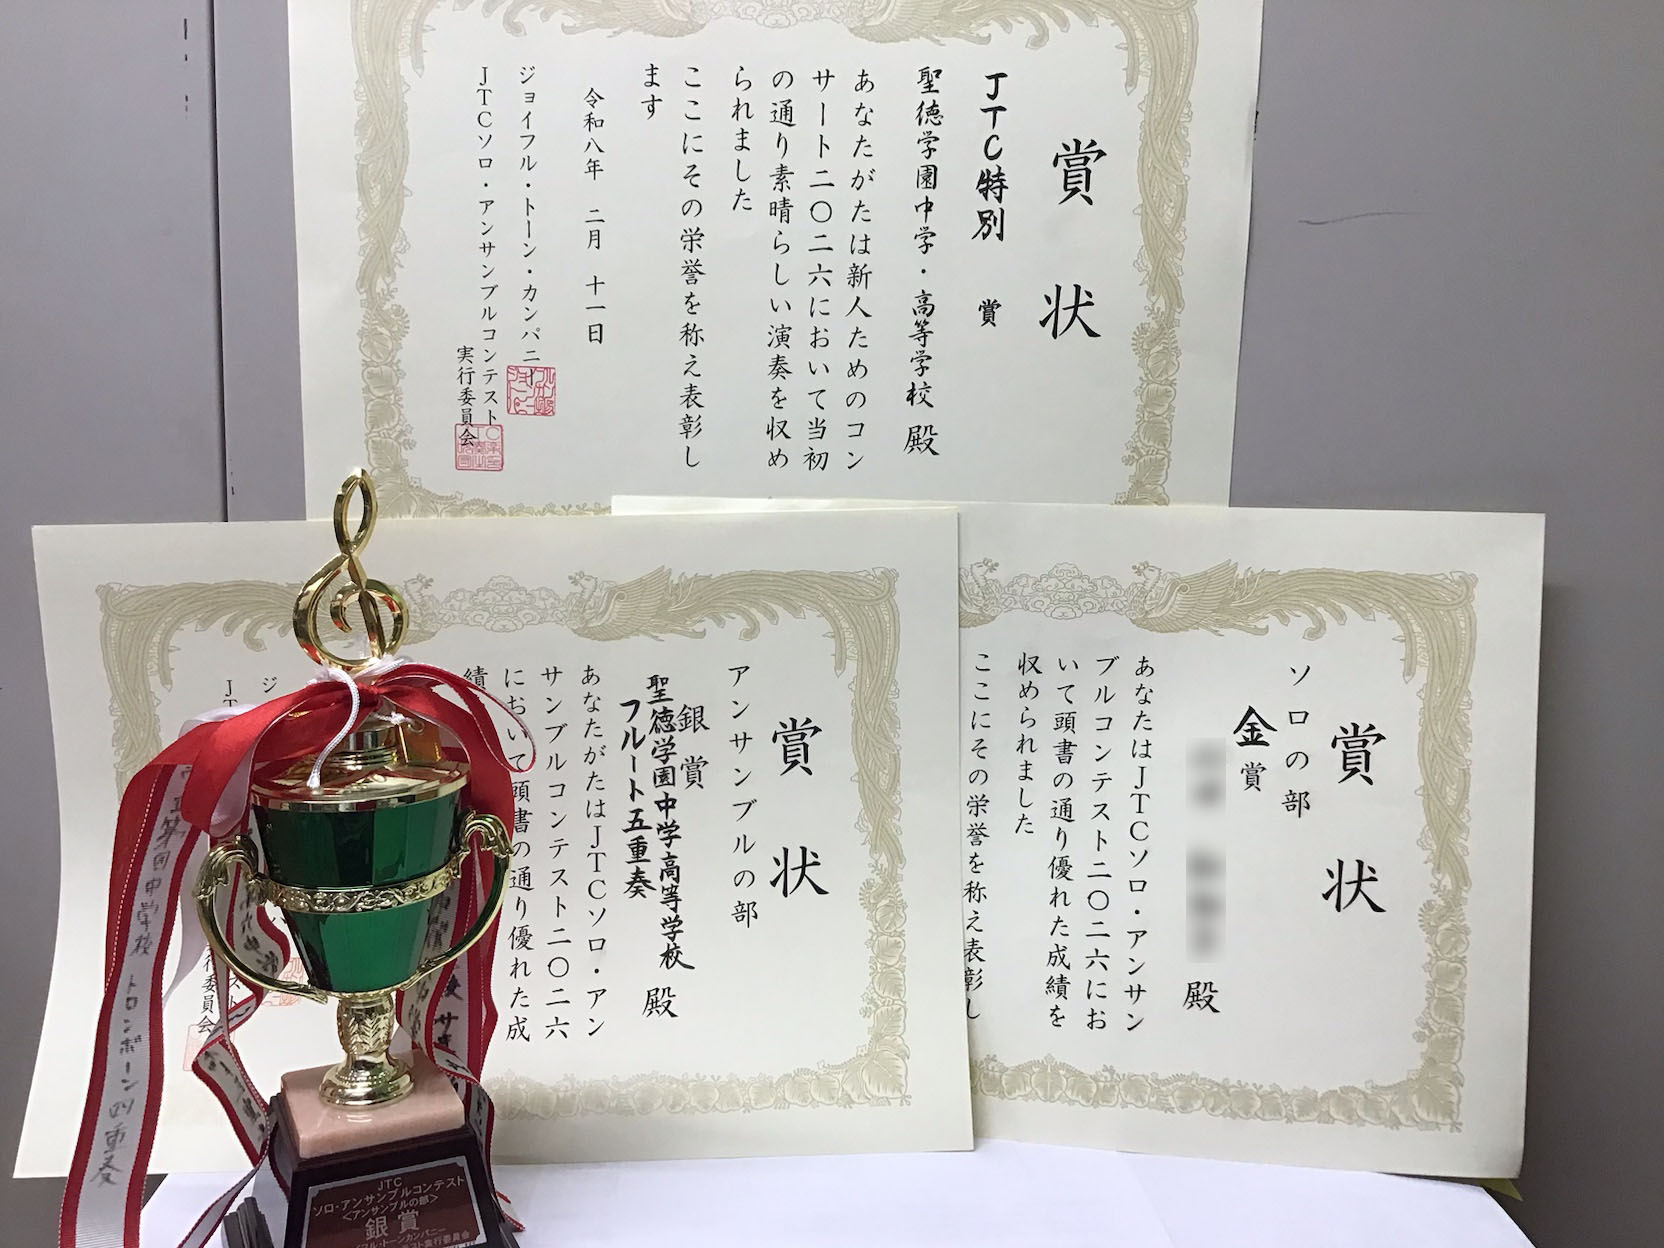 賞状
JTC特別 賞
聖徳学園中学・高等学校 殿
あなたがたは新人ためのコン
サート二〇二六において当初
の通り素晴らしい演奏を収め
られました
ここにその栄誉を称え表彰し
ます
令和八年 二月 十一日
ジョイフル・トーン・カンパニー
JTCソロ・アンサンブルコンテスト
実行委員会
賞状
アンサンブルの部
銀賞
聖徳学園中学高等学校 殿
フルート五重奏
あなたがたはJTCソロ・アン
サンブルコンテスト二〇二六
において頭書の通り優れた成
績
ジ
JT
行委員会
賞状
ソロの部
金賞
殿
あなたはJTCソロ・アンサン
ブルコンテスト二〇二六にお
いて頭書の通り優れた成績を
収められました
ここにその栄誉を称え表彰し
中学校 トロンボーン四重奏
JTC
ソロ・アンサンブルコンテスト
<アンサンブルの部>
銀賞
フル・トーンカンパニー
テスト実行委員会